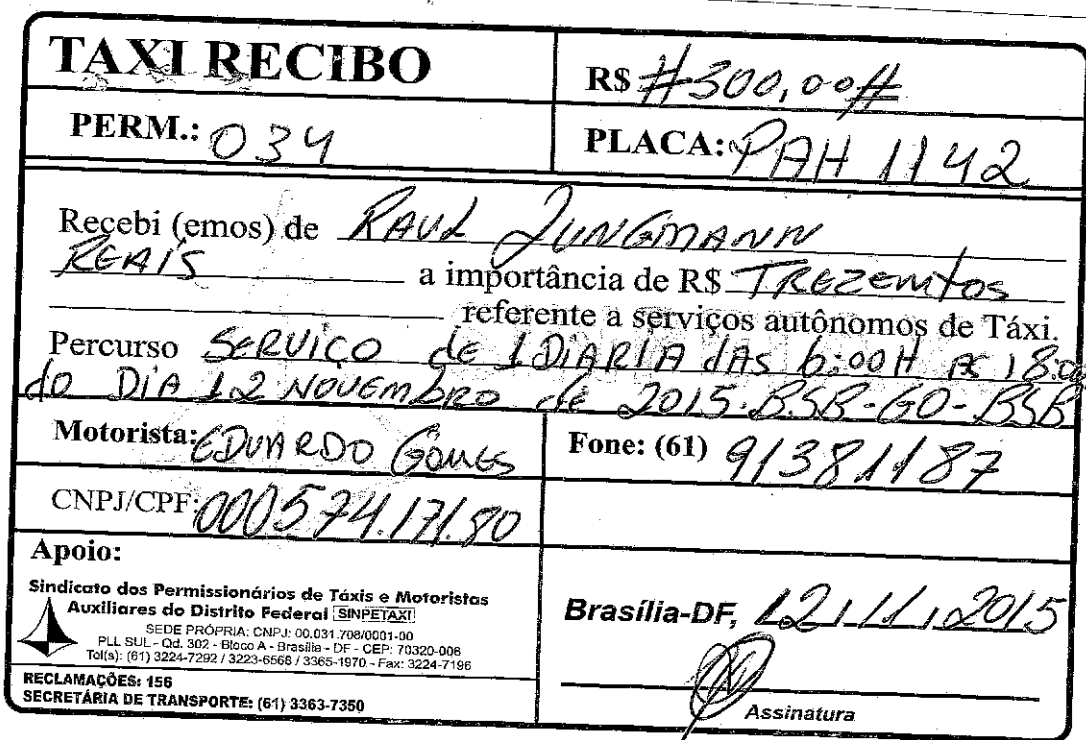 TAXI RECIBO
R$ #300,00#
PERM.: 034
PLACA: PAH 1142
Recebi (emos) de RAUL JUNGMANN
REAIS a importância de R$ TREZENTOS
referente a serviços autônomos de Táxi.
Percurso SERVIÇO de 1 DIARIA dAS 6:00H AS 18:00
do DIA 12 NOVEMBRO de 2015-BSB-GO-BSB
Motorista: EDUARDO GOMES
Fone: (61) 91381187
CNPJ/CPF: 000574.171.80
Apoio:
Sindicato dos Permissionários de Táxis e Motoristas
Auxiliares do Distrito Federal SINPETAXI
SEDE PRÓPRIA: CNPJ: 00.031.708/0001-00
PLL SUL - Qd. 302 - Bloco A - Brasília - DF - CEP: 70320-006
Tel(s): (61) 3224-7292 / 3223-6566 / 3365-1970 - Fax: 3224-7196
RECLAMAÇÕES: 156
SECRETÁRIA DE TRANSPORTE: (61) 3363-7350
Brasília-DF, 12/11/2015
Assinatura